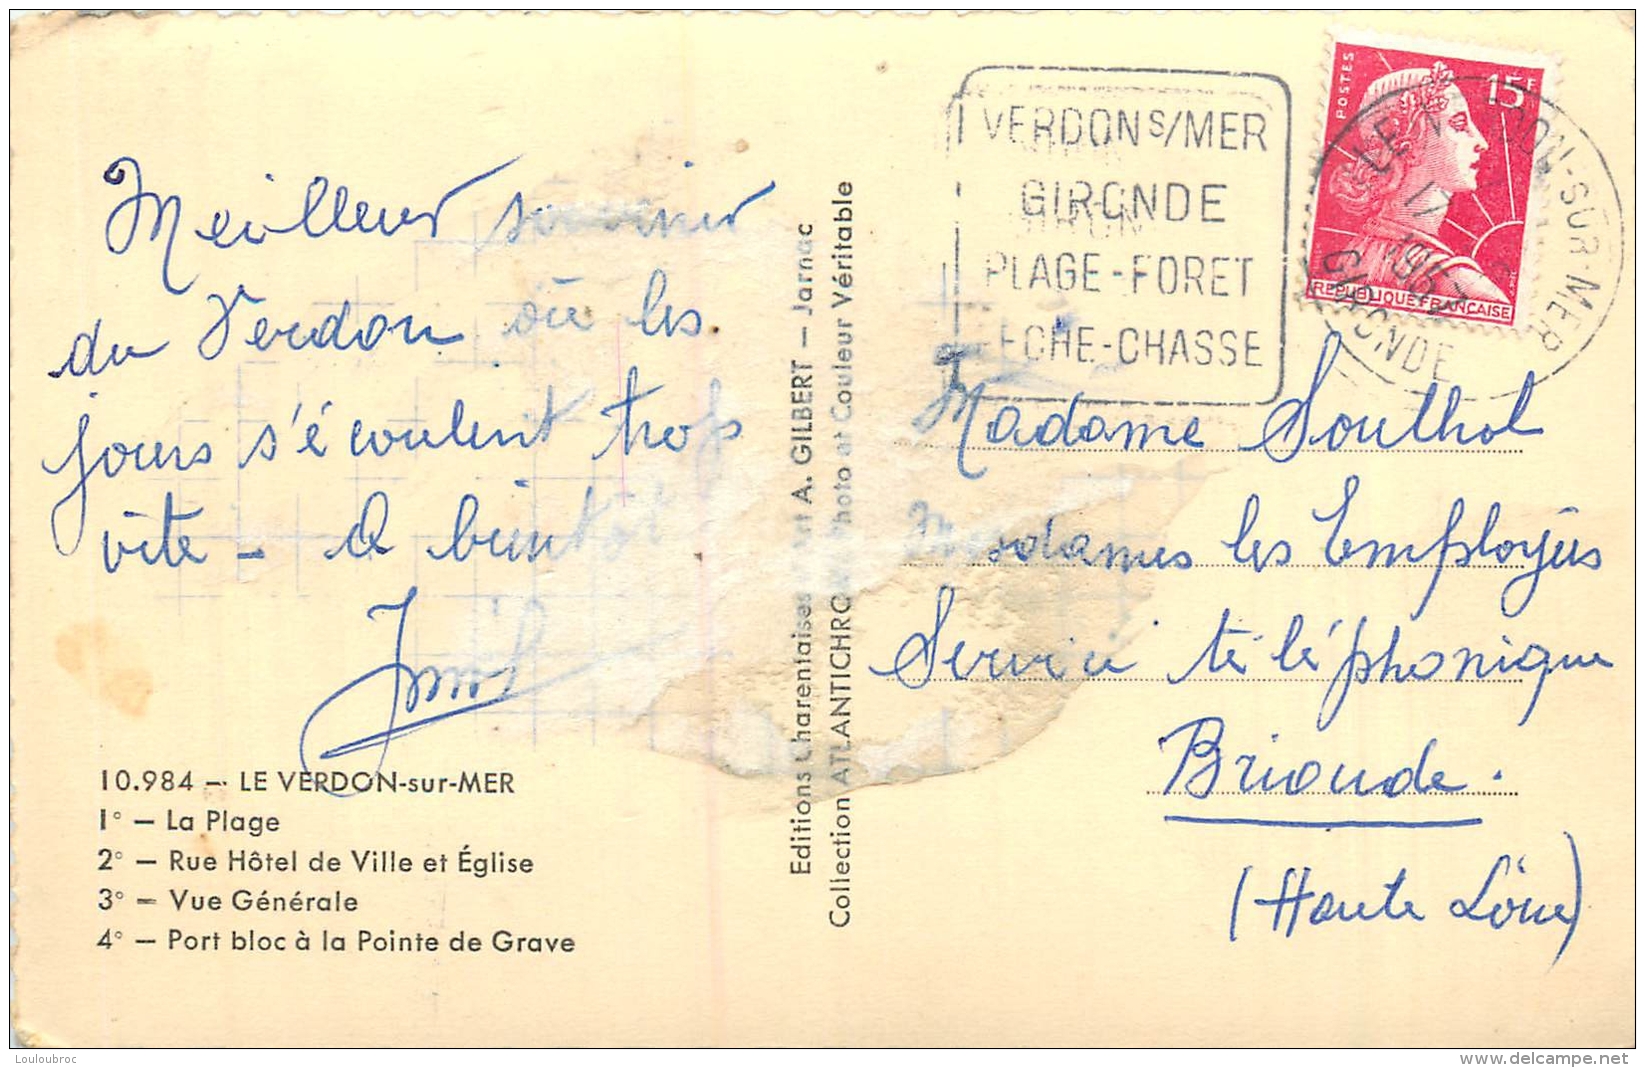 Meilleur souvenir
du Verdon où les
jours s'écoulent trop
vite - A bientôt
10.984 — LE VERDON-sur-MER
1° — La Plage
2° — Rue Hôtel de Ville et Église
3° — Vue Générale
4° — Port bloc à la Pointe de Grave
Editions Charentaises A. GILBERT — Jarnac
Collection ATLANTICHRO hoto Couleur Véritable
VERDON S/MER
GIRONDE
PLAGE-FORET
ECHE-CHASSE
POSTES
15F
REPUBLIQUE FRANCAISE
LE V RDON-SUR-MER
GIRONDE
Madame Southol
Mesdames les Employées
Service téléphonique
Brioude.
(Haute Loire)
Louloubroc
www.delcampe.net